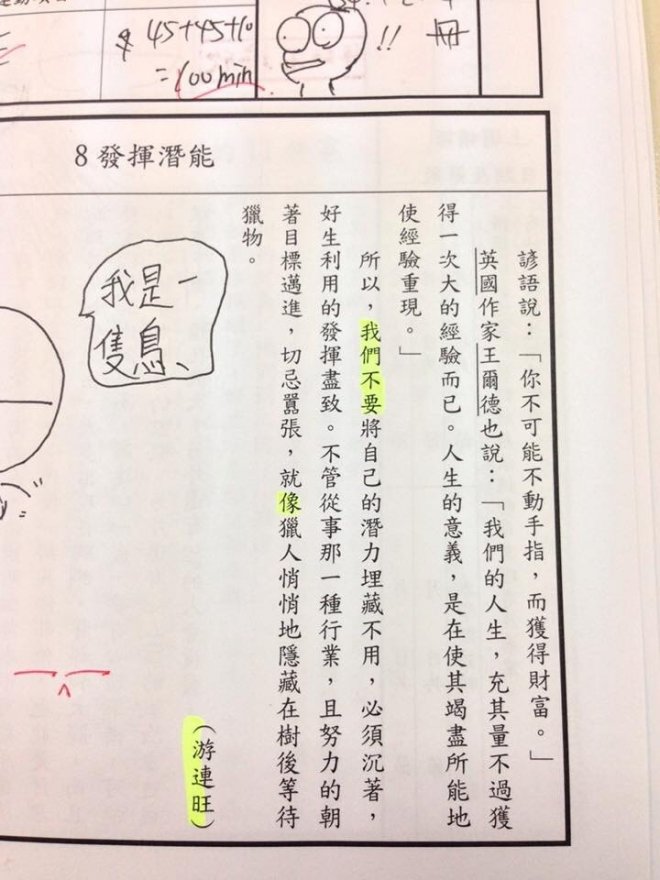 $ 45+45+10
=100min
!!
冊
8 發揮潛能
諺語說：「你不可能不動手指，而獲得財富。」
英國作家王爾德也說：「我們的人生，充其量不過獲
得一次大的經驗而已。人生的意義，是在使其竭盡所能地
使經驗重現。」
所以，我們不要將自己的潛力埋藏不用，必須沉著，
好生利用的發揮盡致。不管從事那一種行業，且努力的朝
著目標邁進，切忌囂張，就像獵人悄悄地隱藏在樹後等待
獵物。
（游連旺）
我是一
隻鳥、